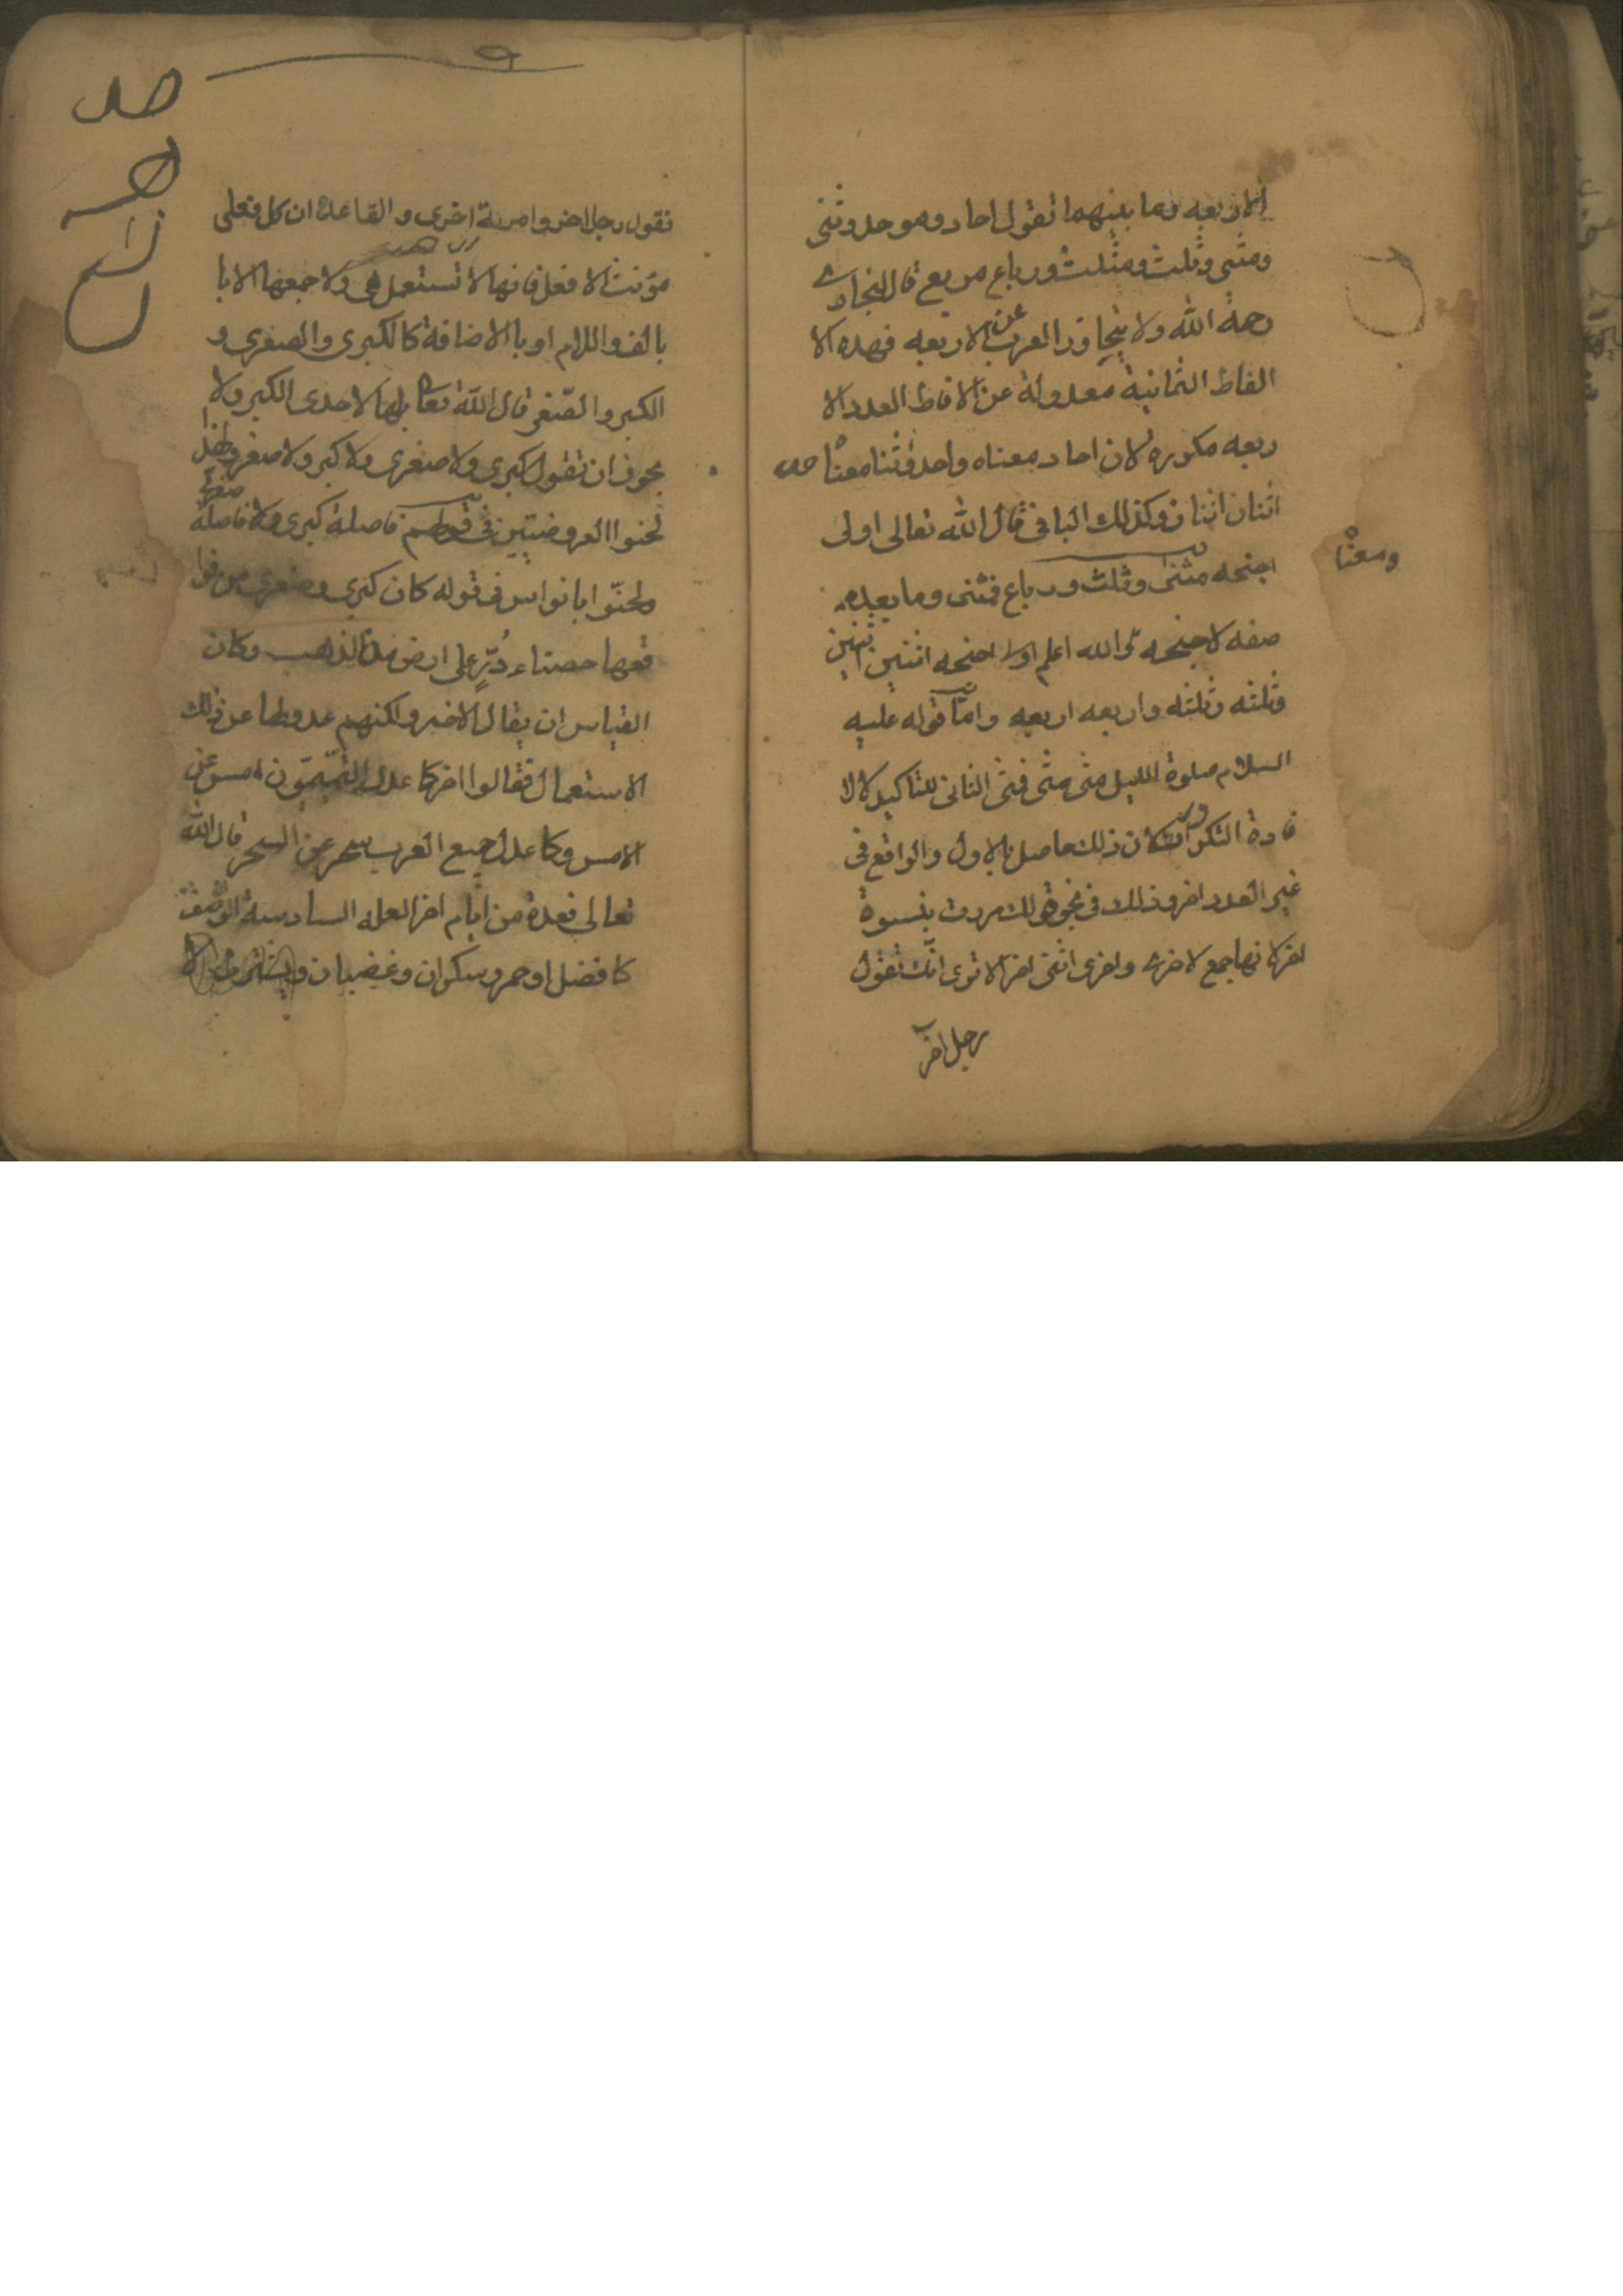 الاربعه وما بينهما تقول احاد وموحد وثنى
ومثنى وثلث ومثلث ورباع مربع قال البخارى
رحمة الله ولا يتجاوز العرب عن الاربعه فهده الا
الفاظ الثمانية معدولة عن الافاظ العدد الا
ربعه مكرره لان احاد معناه واحد وثنا معنا
ومعنا
اثنان اثنان وكذلك الباقى قال الله تعالى اولى
اجنحه مثنى وثلث ورباع فمثنى وما بعده
صفه لاجنحه والله اعلم اولى اجنحه اثنين اثنين
وثلثه وثلثه واربعه اربعه واما قوله عليه
السلام صلوة الليل مثنى مثنى فمثنى الثانى للتاكيد لالا
فادة التكرار لان ذلك حاصل بالاول والواقع فى
غير العدد اخر وذلك فى نحو قولك مررت بنسوة
اخر لانها جمع لاخرى واخرى انثى اخر الا ترى انك تقول
رجل اخر
تقول رجل اخر وامرءة اخرى والقاعدة ان كل فعلى
مؤنث الافعل فانها لا تستعمل هى ولا جمعها الا با
بالف واللام او بالاضافة كالكبرى والصغرى و
الكبر والصغر قال الله تعا انها لاحدى الكبر ولا
يجوز ان تقول كبرى ولا صغرى ولا كبر ولا صغر ولهذا
لحنوا العروضيين فى قولهم فاصلة كبرى ولا فاصلة
صغرى
ولحنوا ابا نواس فى قوله كان كبرى وصغرى من فوا
قعها حصباء درٍّ على ارض من الذهب وكان
القياس ان يقال الاخر ولكنهم عدولها عن ذلك
الاستعمال فقالوا اخر كما عدل التميميون امس عن
الامس وكما عدل جميع العرب سحر عن السحر قال الله
تعالى فعدة من ايام اخر العله السادسة الوصف
كافضل او حمر وسكران وغضبان ويشترط لا